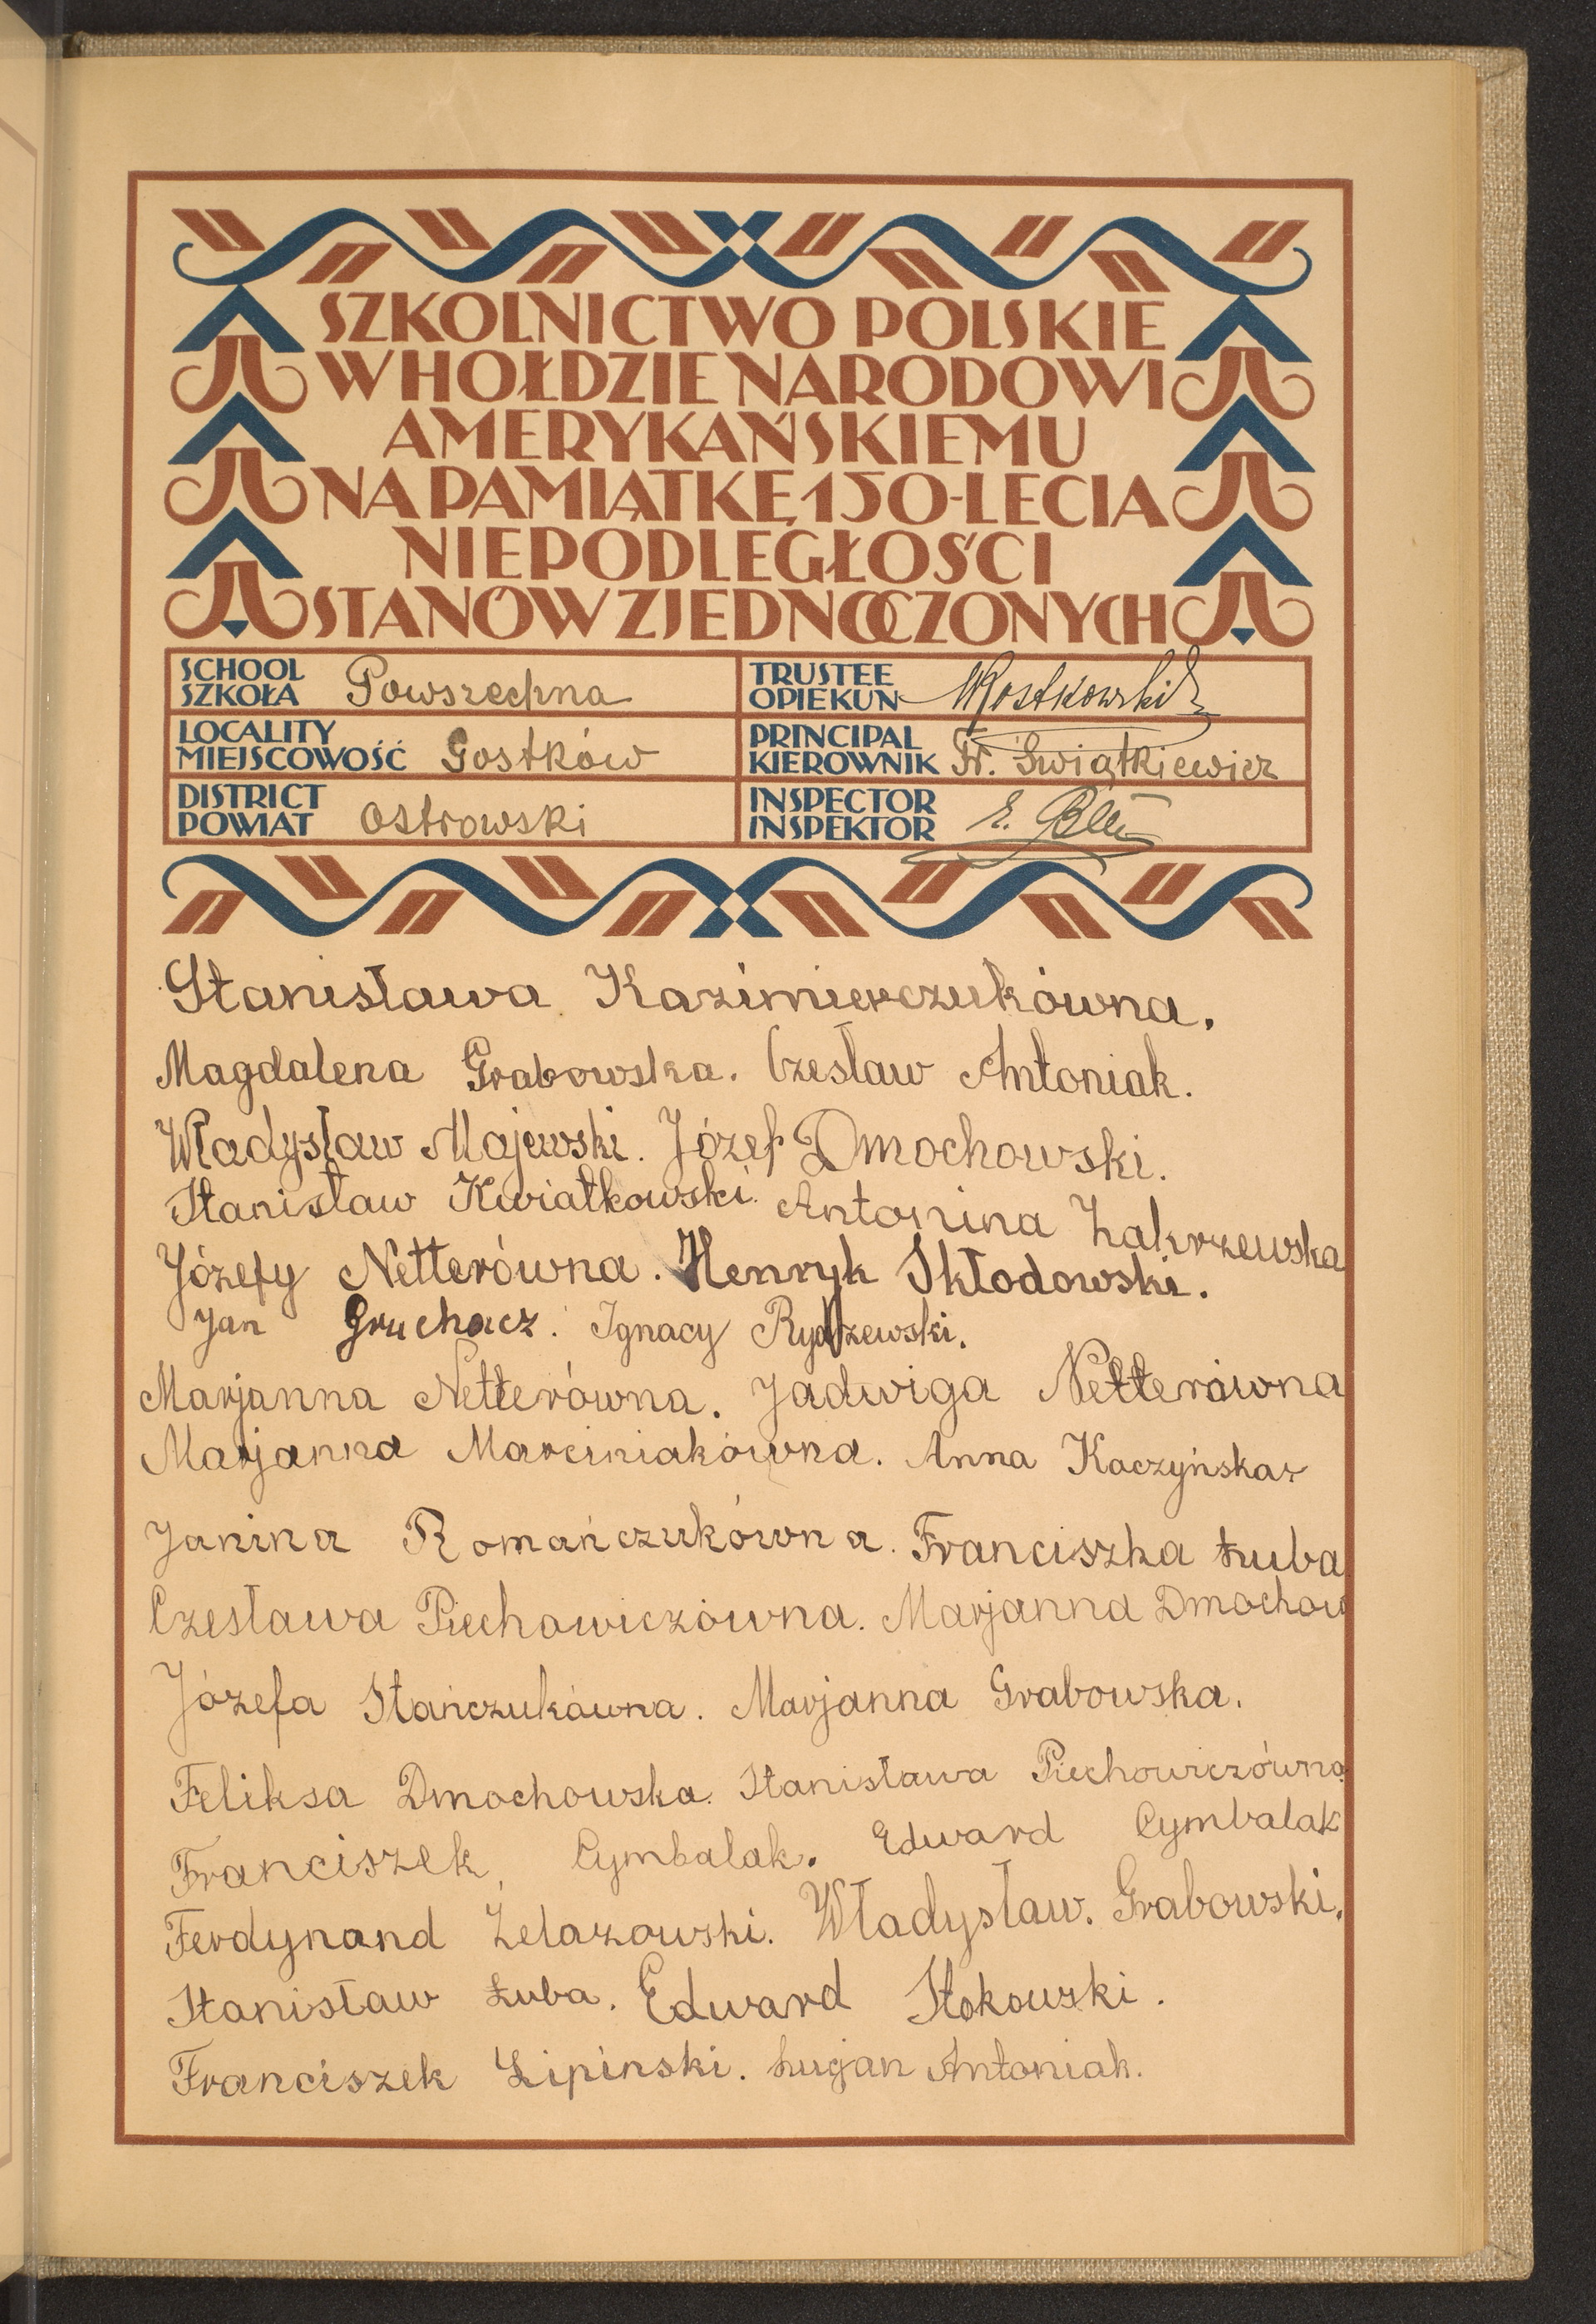 SZKOLNICTWO POLSKIE
W HOŁDZIE NARODOWI
AMERYKAŃSKIEMU
NA PAMIĄTKĘ 150-LECIA
NIEPODLEGŁOŚCI
STANÓW ZJEDNOCZONYCH
SCHOOL
SZKOŁA Powszechna
TRUSTEE
OPIEKUN WRostkowski
LOCALITY
MIEJSCOWOŚĆ Gostków
PRINCIPAL
KIEROWNIK Fr. Świątkiewicz
DISTRICT
POWIAT Ostrowski
INSPECTOR
INSPEKTOR E.
Stanisława Kazimierczukówna.
Magdalena Grabowska. Czesław Antoniak.
Władysław Majewski. Józef Dmochowski.
Stanisław Kwiatkowski. Antonina Zakrzewska
Józefy Netterówna. Henryk Skłodowski.
Jan Gruchacz. Ignacy Rydzewski.
Marjanna Netterówna. Jadwiga Netterówna
Marjanna Marciniakówna. Anna Kaczyńska.
Janina Romańczukówna. Franciszka Łuba
Czesława Piechowiczówna. Marjanna Dmochow
Józefa Stańczukówna. Marjanna Grabowska.
Feliksa Dmochowska. Stanisława Piechowiczówna
Franciszek Cymbalak. Edward Cymbalak
Ferdynand Żelazowski. Władysław. Grabowski.
Stanisław Łuba. Edward Stokowski.
Franciszek Lipinski. Lucjan Antoniak.